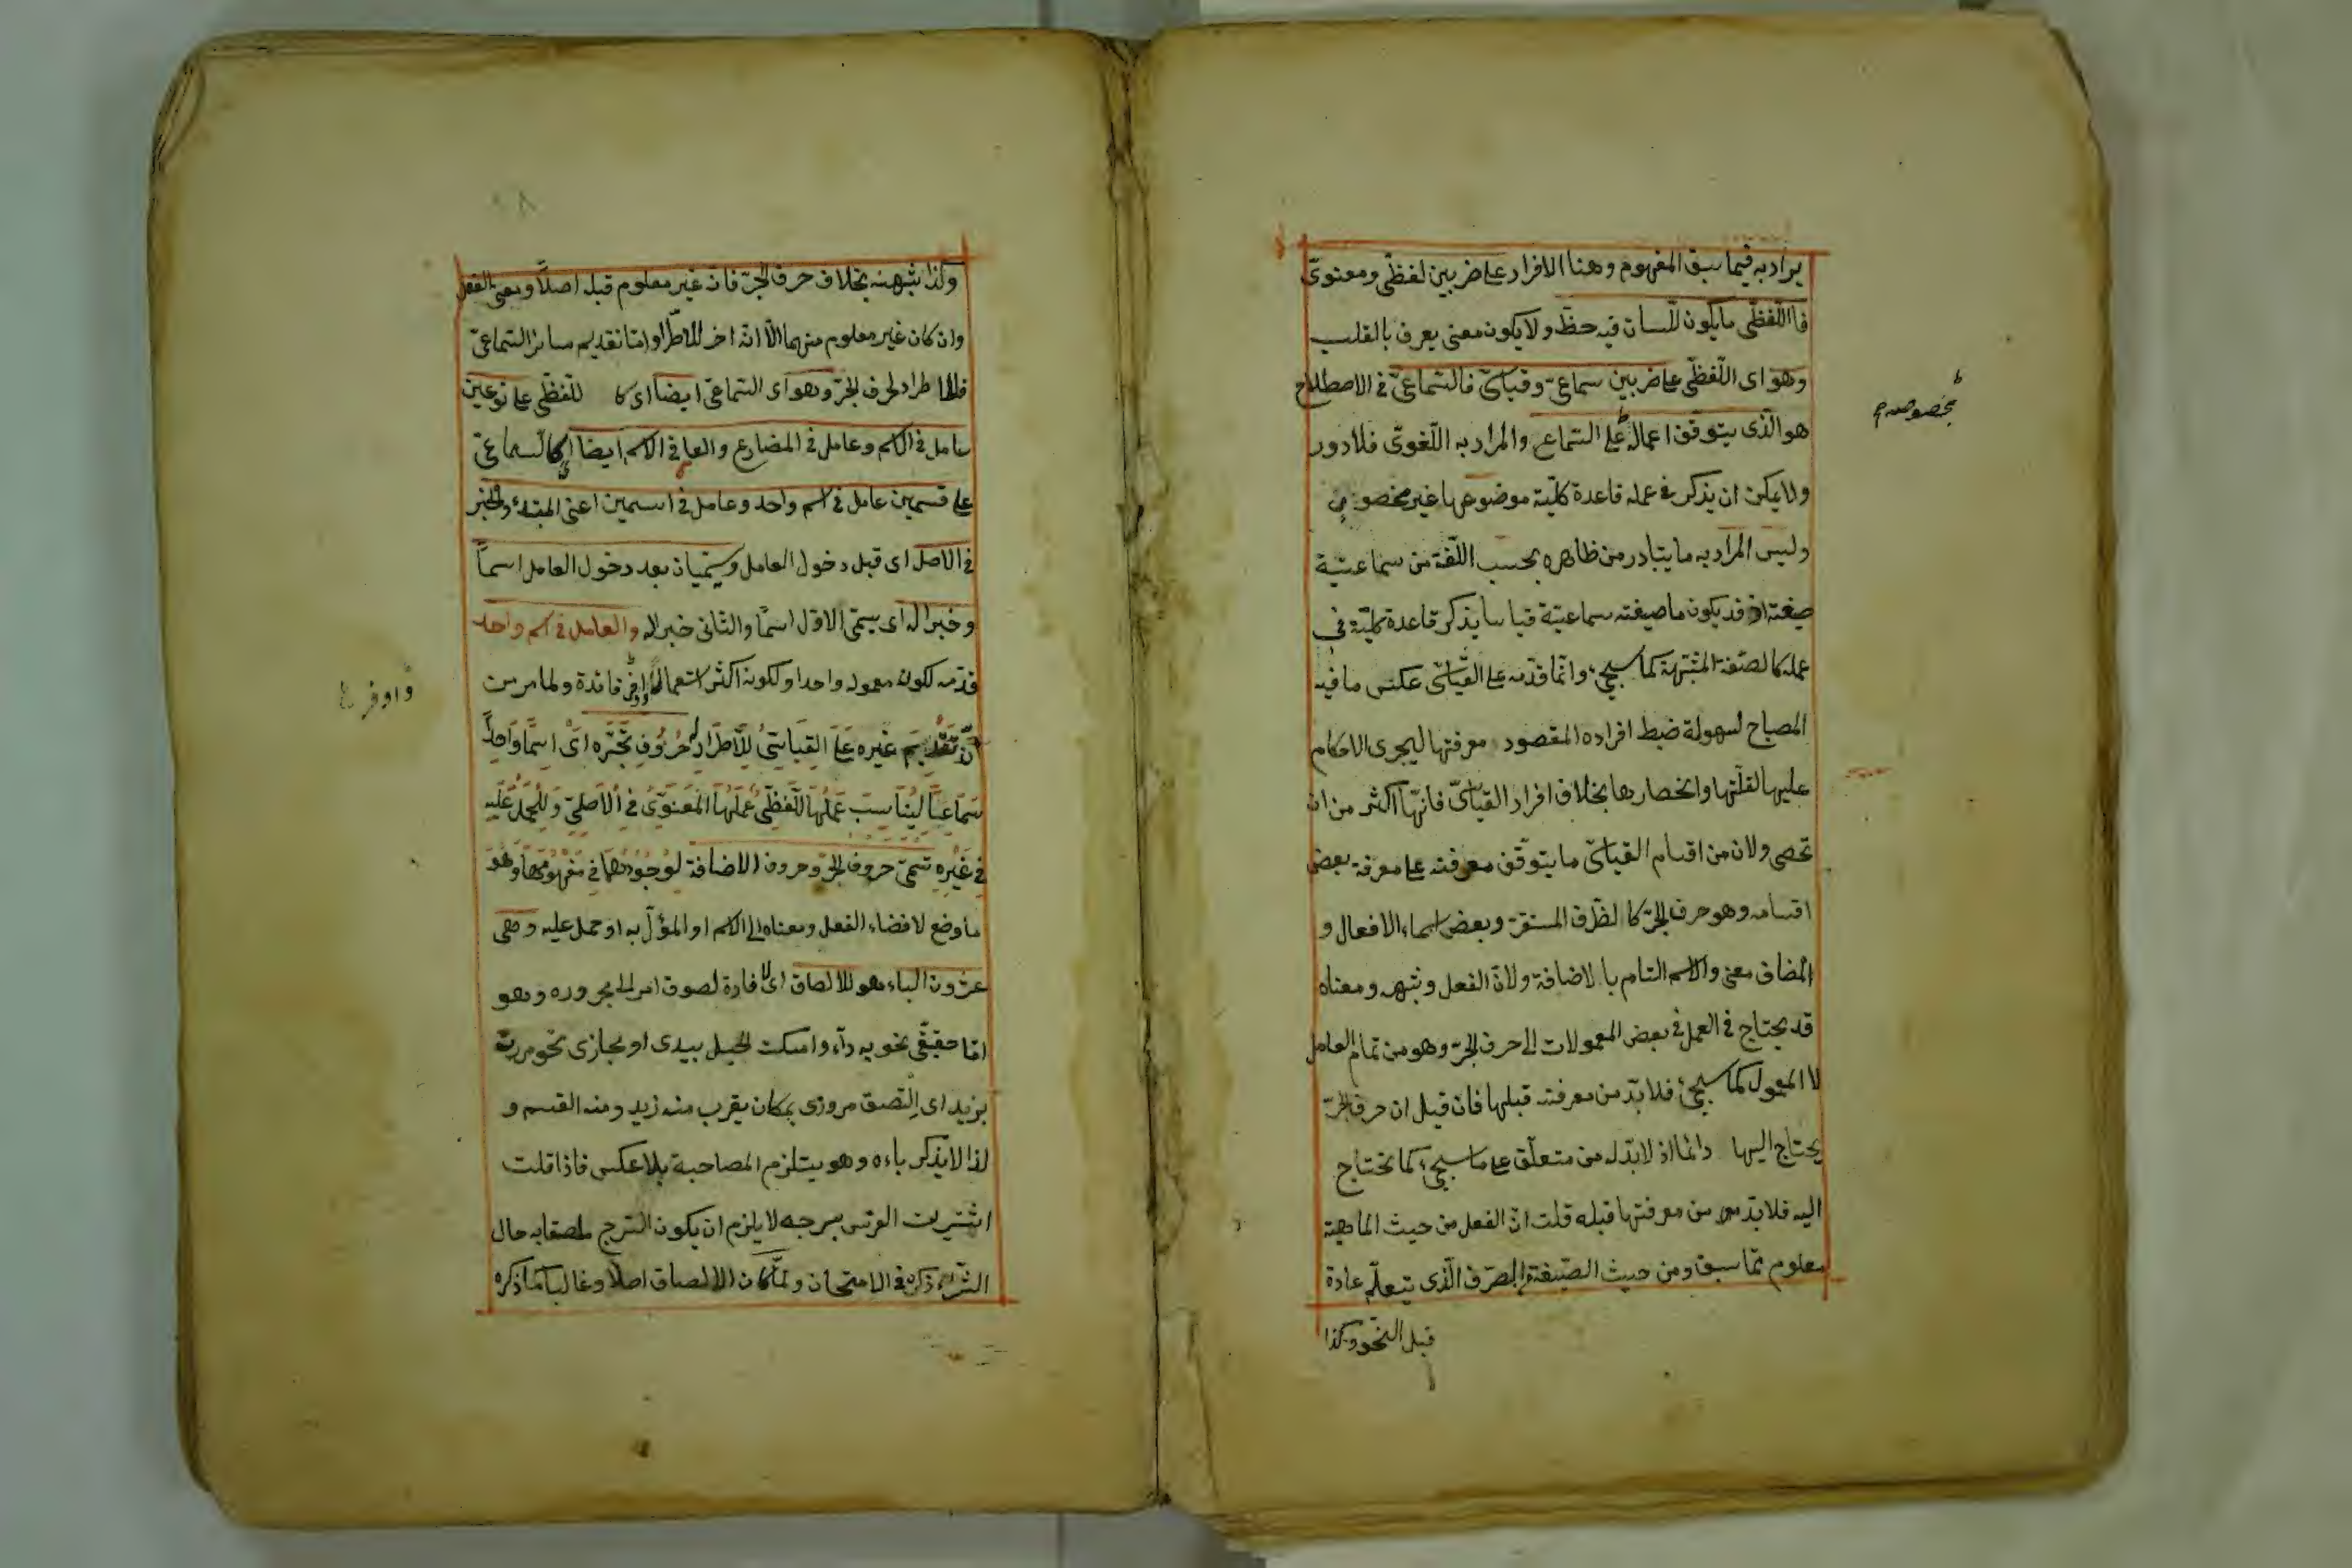 يراد به فيما سبق المفهوم وهنا الافراد على ضربين لفظىّ ومعنوىّ
فااللّفظىّ ما يكون للّسان فيه حظّ ولا يكون معنى يعرف بالقلب
وهو اى اللّفظىّ على ضربين سماعىّ وقياسىّ فالسّماعىّ فى الاصطلاح
هو الّذى يتوقّف اعماله على السّماع والمراد به اللّغوىّ فلا دور
ولا يمكن ان يذكر فى عمله قاعدة كلّيّة موضوعها غير مخصور
وليس المراد به ما يتبادر من ظاهره بحسب اللّغة من سماعيّة
صيغته اذ قد يكون ما صيغته سماعيّة قياسا يذكر قاعدة كلّيّة فى
عمله كالصّفة المشبّهة كما سيجىء وانّما قدّمه على القياسىّ عكس ما فيه
المصباح لسهولة ضبط افراده المقصود معرفتها ليجرى الاحكام
عليها لقلّتها وانحصارها بخلاف افراد القياسىّ فانّها اكثر من ان
تحصى ولان من اقسام القياسىّ ما يتوقّف معرفته على معرفة بعض
اقسامه وهو حرف الجرّ كا لظّرف المستقرّ وبعض اسماء الافعال و
المضاف معنى والاسم التام با لاضافة ولانّ الفعل وشبهه ومعناه
قد يحتاج فى العمل فى بعض المعمولات الى حرف الجرّ وهو من تمام العامل
لا المعمول كما سيجىء فلا بدّ من معرفته قبلها فان قيل ان حرف الجرّ
يحتاج اليها دائما اذ لا بدّ له من متعلّق على ما سيجىء كما تحتاج
اليه فلا بدّ من معرفتها قبله قلت انّ الفعل من حيث الماهية
معلوم ممّا سبق ومن حيث الصّيغة بالصّرف الّذى يتعلّم عادة
قبل النّحو وكذا
مخصوصة
وكذا شبهه بخلاف حرف الجرّ فانه غير معلوم قبل اصلاً ومعنى الفعل
وان كان غير معلوم منهما الّا انّه اخر للاطّراد وامّا تقديم سائر السّماعىّ
فللاطراد لحرف الجرّ وهو اى السّماعىّ ايضا اى كا للّفظىّ على نوعين
عامل فى الاسم وعامل فى المضارع والعامل فى الاسم ايضا اى كالسّماعىّ
على قسمين عامل فى اسم واحد وعامل فى اسمين اعنى المبتدء والخبر
فى الاصل اى قبل دخول العامل ويسمّيان بعد دخول العامل اسماً
وخبرا له اى يسمّى الاوّل اسمًا والثّانى خبرا له والعامل فى اسم واحد
قدّمه لكون معموله واحدا ولكونه اكثر استعمالاً واوفر فائدة ولما مر من
انّ تقديم غيره على القياسىّ للاطّراد لحروف تجرّه اى اسمًا واحدًا
سماعيًّا ليناسب عملها اللّفظىّ عملها المعنوىّ فى الاصلىّ وللحمل عليه
فى غيره تسمّى حروف الجرّ وحروف الاضافة لوجودهما فى مفهومها وهو
ما وضع لافضاء الفعل ومعناه الى الاسم او المؤوّل به او حمل عليه وهى
عشرون الباء وهو للالصاق اى لافادة لصوق امر الى مجروره وهو
امّا حقيقىّ نحو به داء وامسكت الحبل بيدى او مجازى نحو مررت
بزيد اى التصق مرورى بمكان يقرب منه زيد ومنه القسم و
لذا لا يذكر باءه وهو يستلزم المصاحبة بلا عكس فاذا قلت
اشتريت الفرس بسرجه لا يلزم ان يكون السّرج ملصقا به حال
الشّراء ذكره فى الامتحان ولمّا كان الالصاق اصلا وغالبا كما ذكره
واوفر